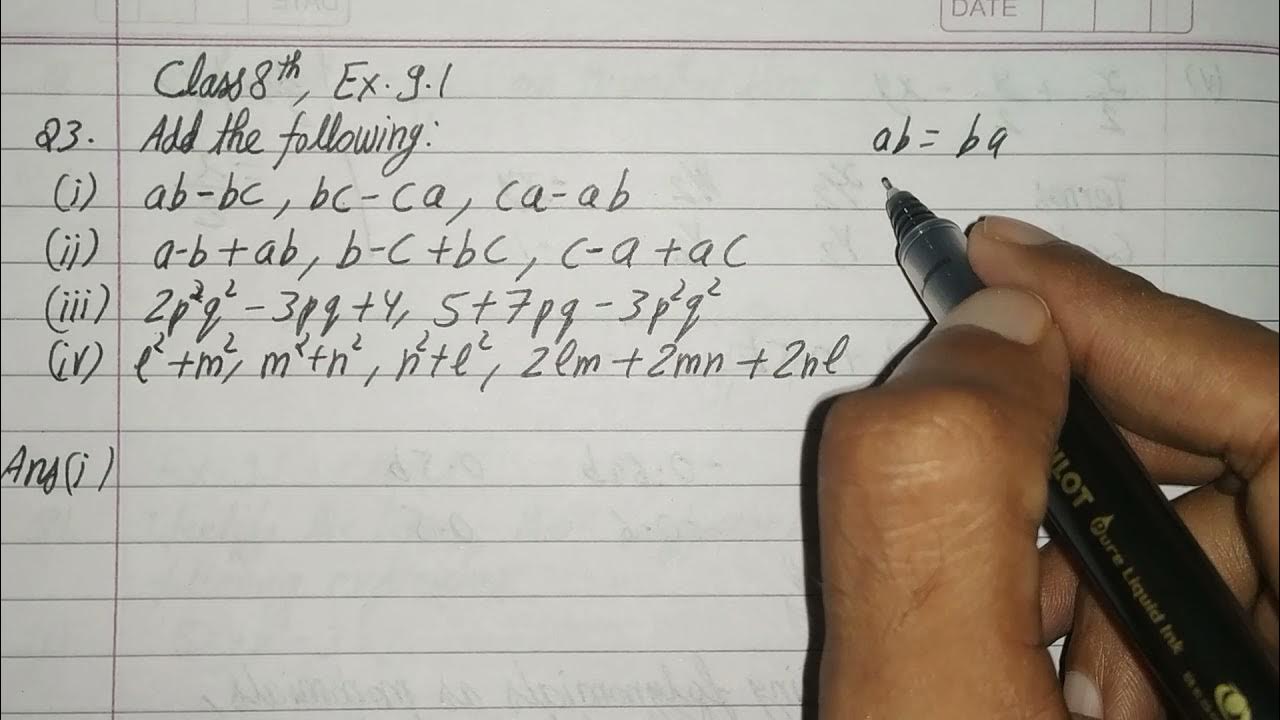 DATE
Class 8th, Ex. 9.1
Q3. Add the following:
ab = ba
(i) ab-bc, bc-ca, ca-ab
(ii) a-b+ab, b-c+bc, c-a+ac
(iii) 2p²q² - 3pq + 4, 5 + 7pq - 3p²q²
(iv) l² + m², m² + n², n² + l², 2lm + 2mn + 2nl
Ans(i)
PILOT Pure Liquid Ink